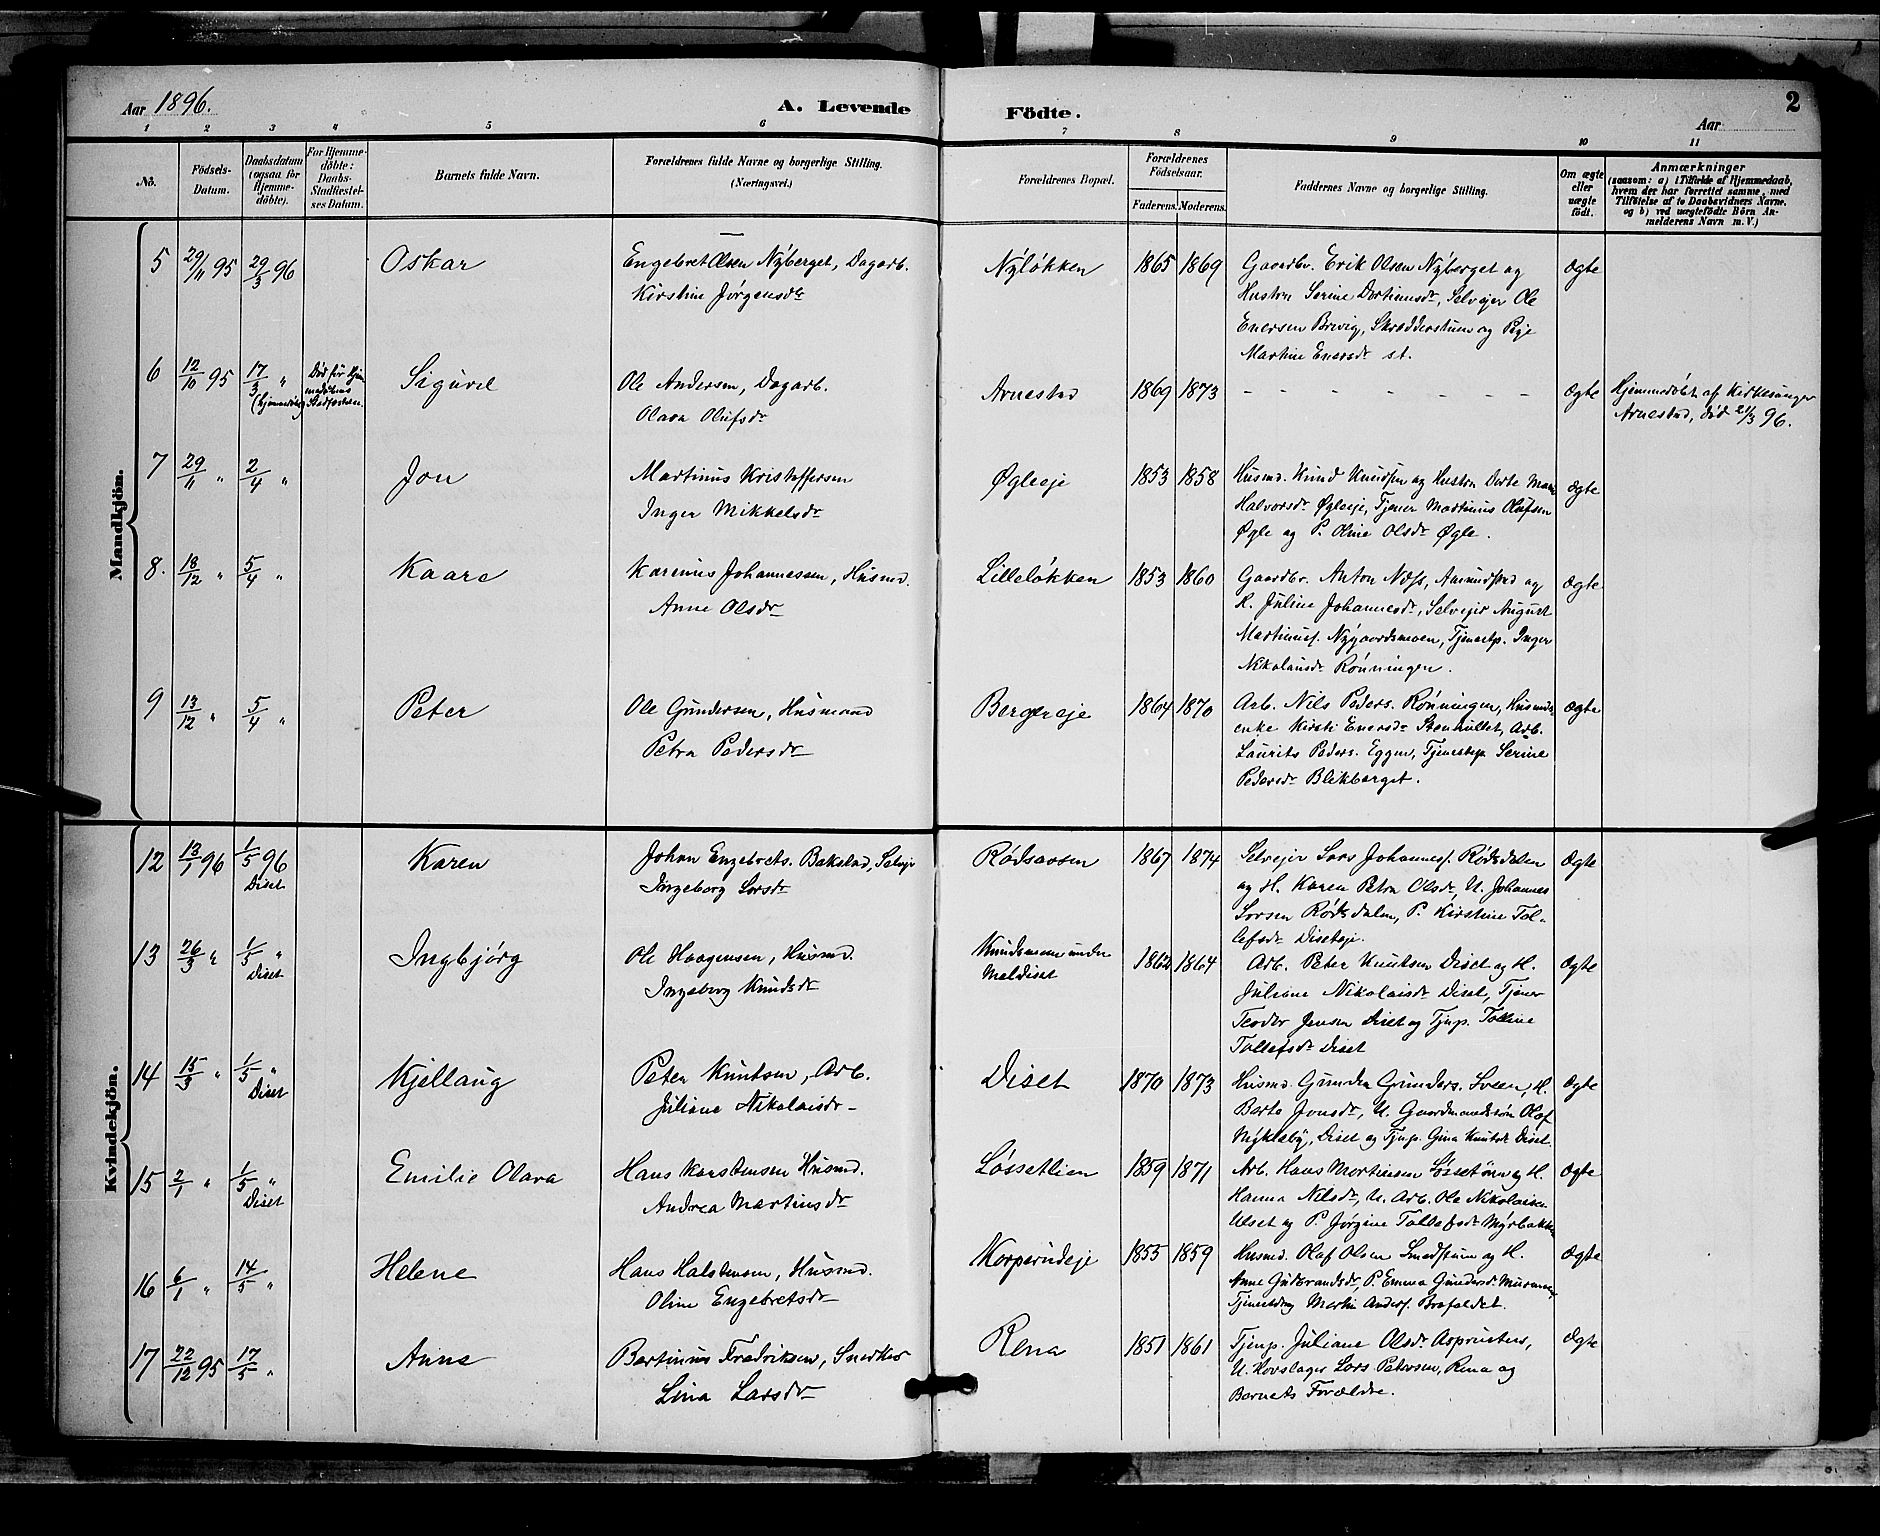 Aar 1896.
A. Levende Födte.
2
Aar
1 2 3 4 5 6 7 8 9 10 11
No.
Födsels-Datum.
Daabsdatum (ogsaa for Hjemmedöbte).
For Hjemmedöbte: Daabs-Stadfæstelses Datum.
Barnets fulde Navn.
Forældrenes fulde Navne og borgerlige Stilling.
(Næringsvei.)
Forældrenes Bopæl.
Forældrenes Födselsaar.
Faderens. Moderens.
Faddernes Navne og borgerlige Stilling.
Om ægte eller uægte födt.
Anmærkninger
(saasom: a) i Tilfælde af Hjemmedaab, hvem der har forrettet samme, med Tilföielse af to Daabsvidners Navne, og b) ved uægtefödte Börn Anmelderens Navn m. V.)
Mandkjön.
5 29/11 95 29/3 96 Oskar Engebret Olsen Nyberget, Dagarb. Nyløkken 1865 1869 Gaardbr. Erik Olsen Nyberget og ægte
Kirstine Jørgensdr Hustru Serine Dortinusdr, Selvejer Ole
Enersen Brevig, Skrædderstuen og Pige
Martine Enersdr st.
6 12/10 95 17/3 " (hjemmedøbt) Død før Hjemmedaabens Stadfæstelse. Sigurd Ole Andersen, Dagarb. Arnestad 1869 1873 - - - - - - - ægte Hjemmedøbt af Kirkesanger
Olava Olufsdr Arnestad, død 21/3 96.
7 29/11 " 2/4 " Jon Martinus Kristoffersen Øgleeje 1853 1858 Husmd. Knud Knudsen og Hustru Dorte Marie ægte
Inger Mikkelsdr Halvorsdr Øgleeje, Tjener Martinus Olafsen
Øgle og P. Oline Olsdr Øgle.
8. 18/12 " 5/4 " Kaare Karenus Johannessen, Husmd. Lilleløkken 1853 1860 Gaardbr. Anton Næss, Aamundstad og ægte
Anne Olsdr K. Juline Johannesdr, Selvejer August
Martinuss. Nygaardsmoen, Tjenestp. Inger
Nikolaisdr Rønningen.
9 13/12 " 5/4 " Peter Ole Gundersen, Husmand Bergereje 1864 1870 Arb. Nils Peders. Rønningen, Husmds- ægte
Petra Pedersdr enke Kirsti Enersdr Stenhullet, Arb.
Laurits Peders. Eggen, Tjenestep. Serine
Pedersdr Blikberget.
Kvindekjön.
12 13/1 96 1/5 96 Diset Karen Johan Engebrets. Bakeland, Selvejr Rødsaasen 1867 1874 Selvejer Lars Johanness. Rødsdalen ægte
Ingeborg Larsdr og H. Karen Petra Olsdr, U. Johannes
Larsen Rødsdalen, P. Kirstine Tol-
lefsdr Diseteje.
13 26/3 " 1/5 " Diset Ingbjørg Ole Haagensen, Husmd. Knudsmoen under 1862 1864 Arb. Peter Knutsen Diset og H. ægte
Ingeborg Knudsdr Meldiset Juliane Nikolaisdr Diset, Tjener
Teodor Jensen Diset og Tjnp. Tolline
Tollefsdr Diset
14 15/3 " 1/5 " Diset Kjellaug Peter Knutsen, Arb. Diset 1870 1873 Husmd. Gunder Gunders. Sveen, H. ægte
Juliane Nikolaisdr Berte Jonsdr, U. Gaardmandssøn Olaf
Mykleby, Diset og Tjnp. Gina Knutsdr Diset.
15 2/1 " 1/5 " Diset Emilie Olava Hans Karstensen Husmd. Løssetlien 1859 1871 Arb. Hans Mortinsen Løssetøen og H. ægte
Andrea Martinsdr Hanna Nilsdr, U. Arb. Ole Nikolaisen
Ulset og P. Jørgine Tollefsdr Myrbakken
16 6/1 " 14/5 " Helene Hans Halstensen, Husmd. Korperudeje 1855 1859 Husmd. Olaf Olsen Smedstuen og H. ægte
Oline Engebretsdr Anne Gulbrandsdr, P. Emma Gundersdr
Tjenestedrg Martin Anders.
17 22/12 95 17/5 " Anne Bertinius Fredriksen, Snedker Rena 1851 1861 Tjnp. Juliane Olsdr ægte
Lina Larsdr U. Hovslager Lars Petersen, Rena og
Barnets Forældre.